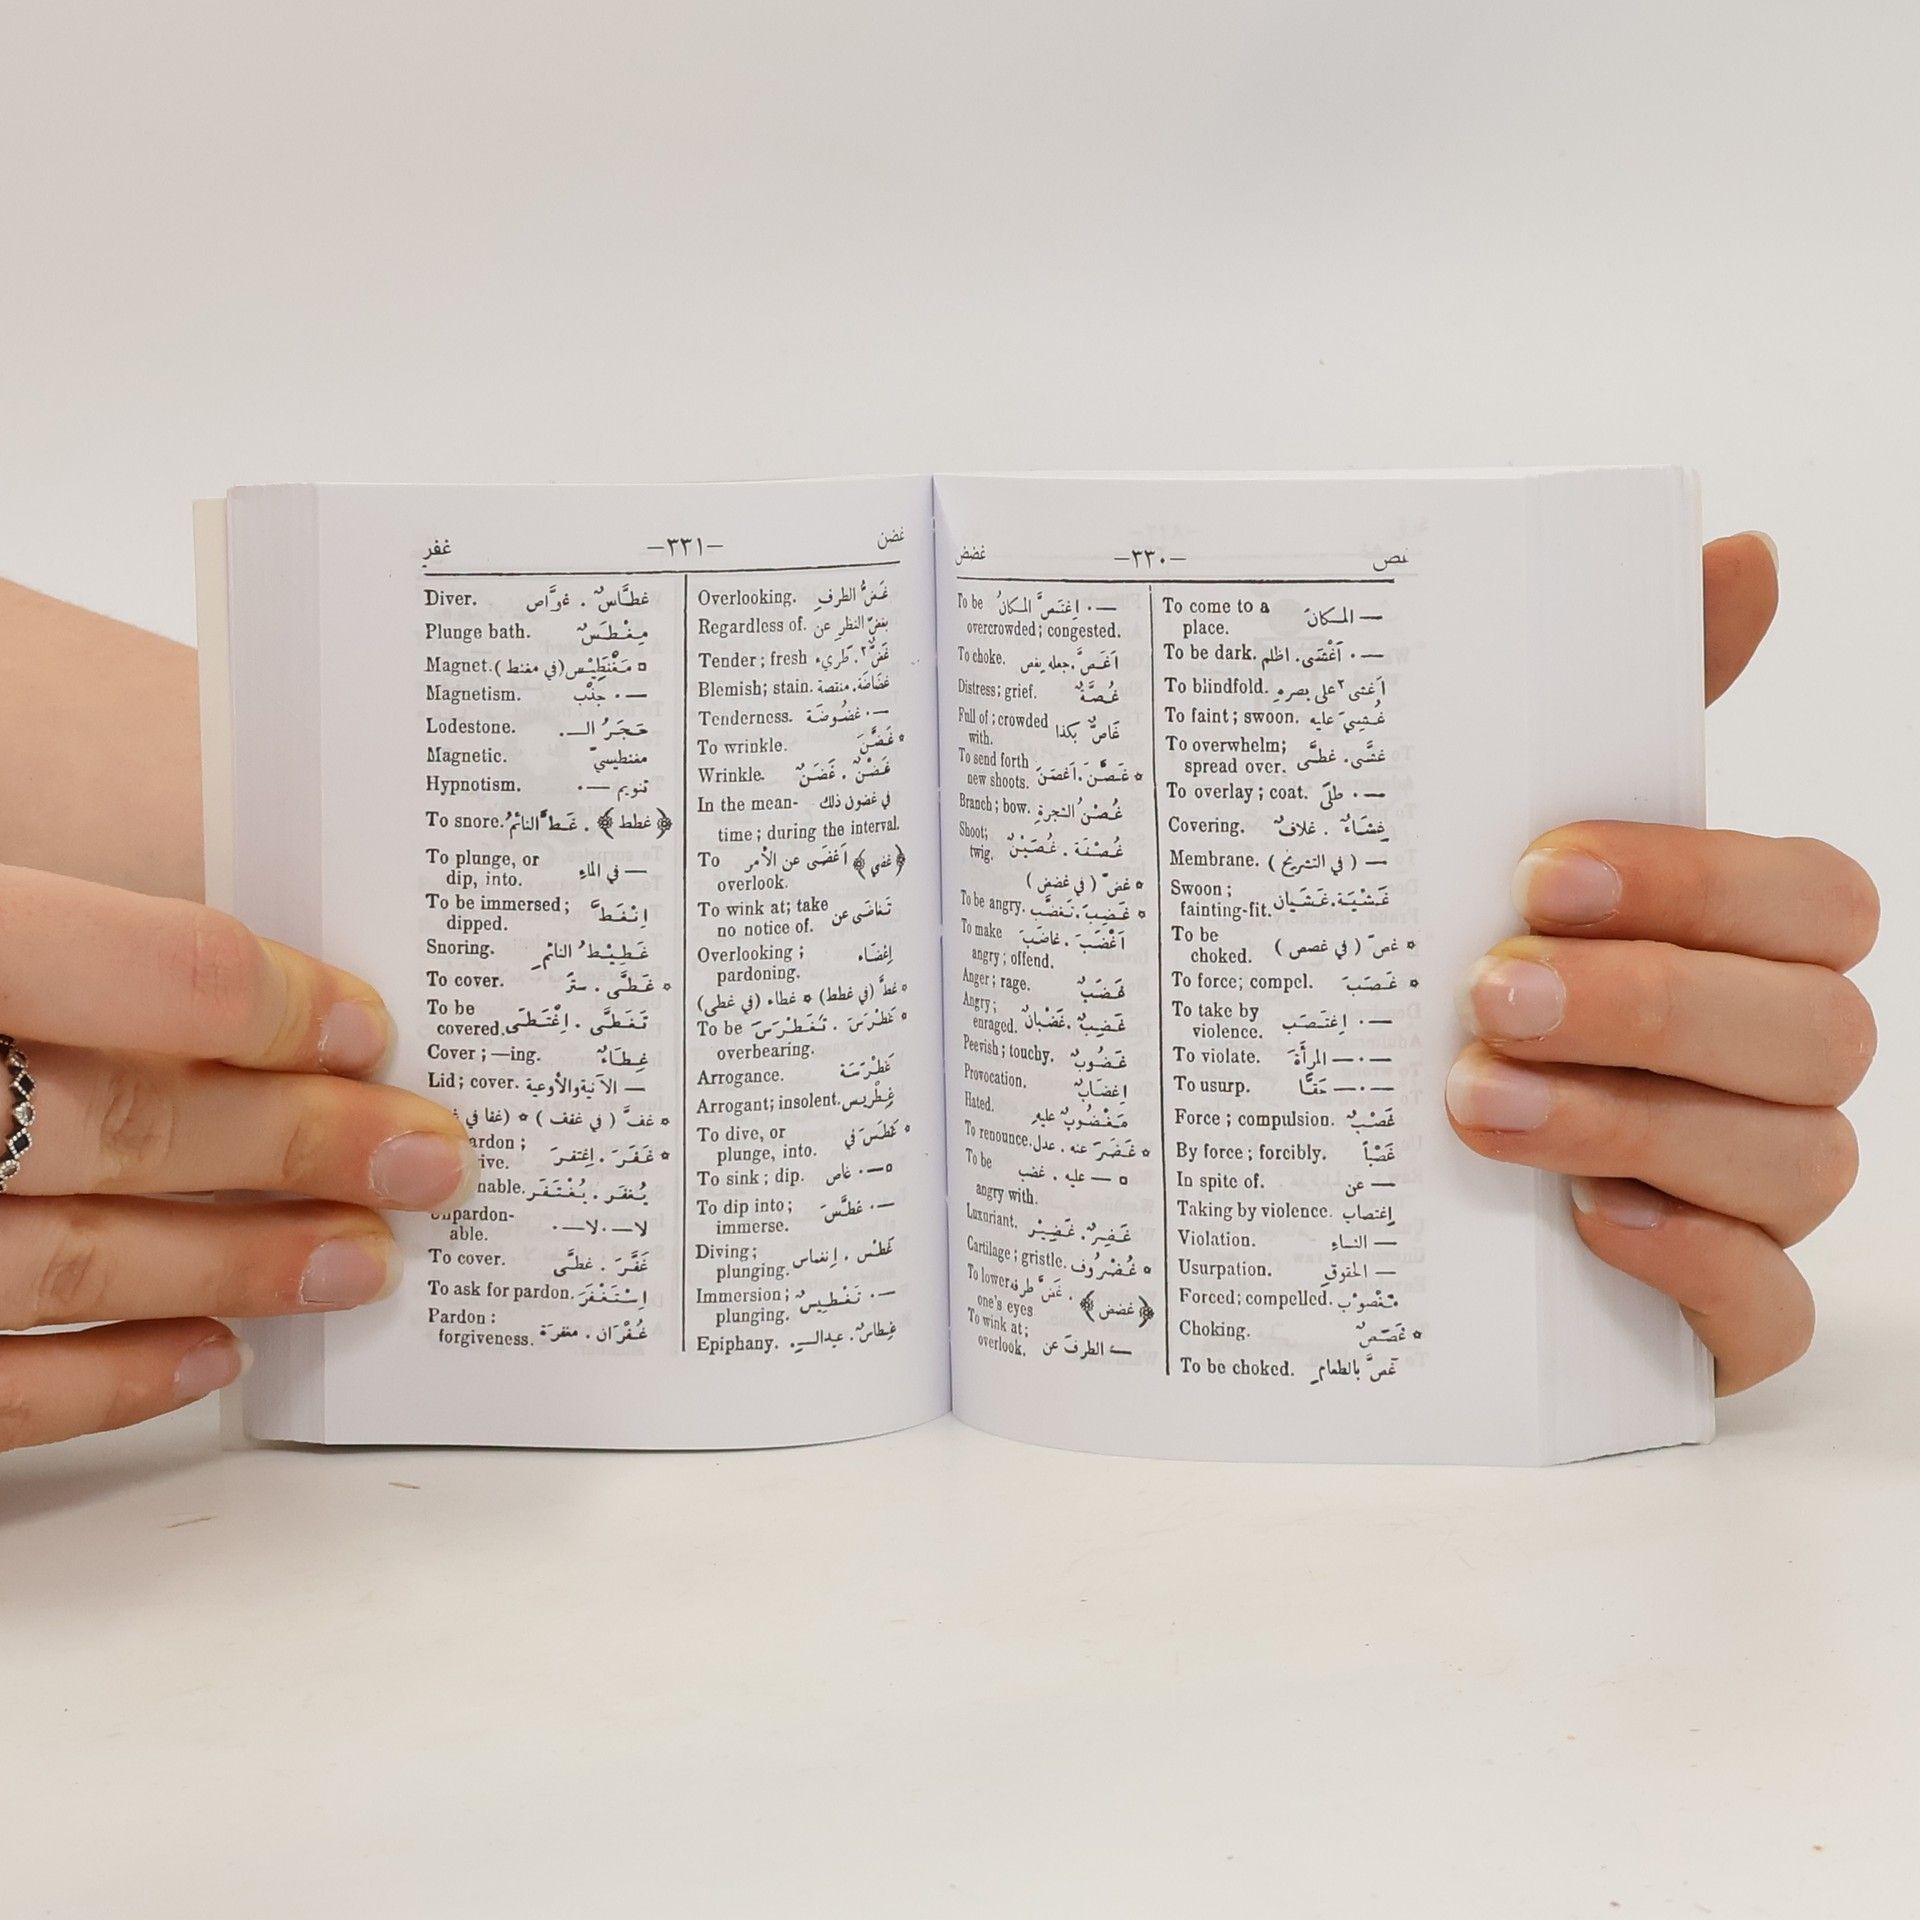 غضض —٣٣٠— غص
To come to a — المكانَ
place.
To be dark. — · أَغْشَى. اظلم
To blindfold. أَغشى ٢ على بصرهِ
To faint; swoon. غُشِيَ عليه
To overwhelm; غشَّى. غطَّى
spread over.
To overlay; coat. — · طلَى
Covering. غِشَاءٌ . غلافٌ
Membrane. — ( في التشريح )
Swoon; غَشْيَة. غَشَيان
fainting-fit.
To be * غصّ ( في غصص )
choked.
To force; compel. * غَصَبَ
To take by — · اِغتَصَب
violence.
To violate. — · — المرأَةَ
To usurp. — · — حَقًّا
Force; compulsion. غَصْبٌ
By force; forcibly. غَصْباً
In spite of. — عن
Taking by violence. إِغتصاب
Violation. — النساءِ
Usurpation. — الحقوقِ
Forced; compelled. مَغْصوْب
Choking. * غَصَصٌ
To be choked. غَصَّ بالطعامِ
To be — · اِغتَصَّ المكانُ
overcrowded; congested.
To choke. أَغَصَّ. جعله يغص
Distress; grief. غُصَّةٌ
Full of; crowded غَاصٌّ بكذا
with.
To send forth * غَصَّنَ. أَغصَنَ
new shoots.
Branch; bow. غُصْنُ الشجرةِ
Shoot; غُصْنَة . غُصَيْنٌ
twig.
* غضّ ( في غضض )
To be angry. * غَضِبَ. تَغَضَّب
To make أَغْضَبَ . غاضَبَ
angry; offend.
Anger; rage. غَضَبٌ
Angry; غَضِبٌ. غَضْبانٌ
enraged.
Peevish; touchy. غَضُوبٌ
Provocation. إِغضَابٌ
Hated. مَغْضُوبٌ عليهِ
To renounce. * غَضَرَ عنه . عدل
To be ▫ — عليه . غضب
angry with.
Luxuriant. غَضِرٌ. غَضِيْر
Cartilage; gristle. * غُضْرُوف
To lower ﴿غضض﴾ . غَضَّ طرفه
one's eyes
To wink at; — الطرفَ عن
overlook.
غفر —٣٣١— غضن
Overlooking. غَضُّ الطرفِ
Regardless of. بغضّ النظرِ عن
Tender; fresh غَضٌّ ٢. طَريء
Blemish; stain. غَضَاضَة. منقصة
Tenderness. — · غضُوضَة
To wrinkle. * غَضَّنَ
Wrinkle. غَضْنٌ . غَضَنٌ
In the mean- في غضون ذلك
time; during the interval.
To ﴿غضي﴾ أَغضَى عن الأمر
overlook.
To wink at; take تَغاضَى عن
no notice of.
Overlooking; إِغضَاء
pardoning.
* غطّ (في غطط) * غطاء (في غطى)
To be * غَطْرَسَ . تَغَطْرَسَ
overbearing.
Arrogance. غَطْرَسَة
Arrogant; insolent. غِطْرِيس
To dive, or * غَطَسَ في
plunge, into.
To sink; dip. ▫ — · غاص
To dip into; — · غطَّسَ
immerse.
Diving; غَطْس . إِنغماس
plunging.
Immersion; — · تَغْطِيسٌ
plunging.
Epiphany. غِطاسٌ. عيدالـ.
Diver. غطَّاسٌ . غوَّاص
Plunge bath. مِغْطَسٌ
Magnet. ▫ مَغْنَطِيْس(في مغنط)
Magnetism. — · جذْب
Lodestone. حَجَرُ الـ.
Magnetic. مغنطيسيّ
Hypnotism. تنويم — ·
To snore. ﴿غطط﴾ . غَطَّ النائمُ
To plunge, or — في الماءِ
dip, into.
To be immersed; اِنْغَطَّ
dipped.
Snoring. غَطِيْطُ النائمِ
To cover. * غَطَّى . ستَرَ
To be تَغَطَّى . اِغْتَطَى
covered.
Cover; —ing. غِطَاءٌ
Lid; cover. — الآنية والأوعية
* غفَّ ( في غفف ) * (غفا في
ardon; * غَفَرَ . اِغتفرَ
ive.
nable. يُغفَر . يُغْتَفَر
Unpardon- لا — · لا — ·
able.
To cover. غَفَّرَ . غطَّى
To ask for pardon. اِسْتَغْفَرَ
Pardon: غُفْرَان . مغفرَة
forgiveness.